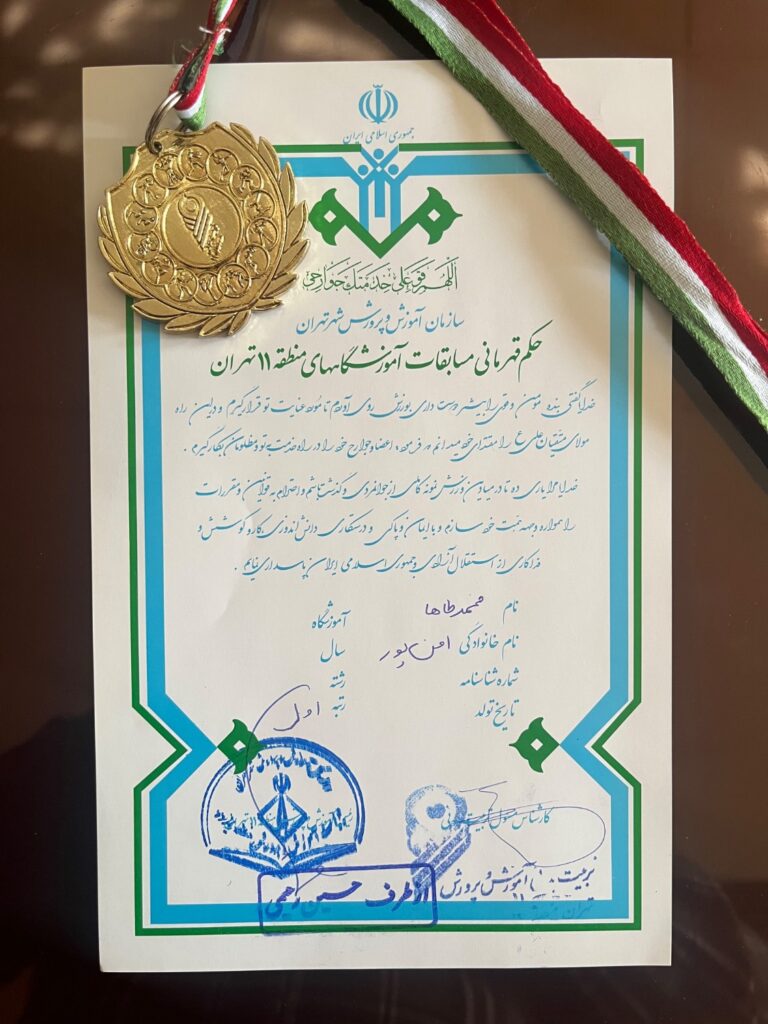 جمهوری اسلامی ایران
اللهم قو علی خدمتک جوارحی
سازمان آموزش و پرورش شهر تهران
حکم قهرمانی مسابقات آموزشگاههای منطقه ۱۱ تهران
خدایا گفتی بنده مومن و قوی را بیشتر دوست داری بورزش روی آوردم تا مورد عنایت تو قرار گیرم و در این راه
مولای متقیان علی ع را مقتدای خود میدانم و اعضاء و جوارح خود را در راه خدمت به تو و مظلومان بکار گیرم .
خدایا مرا یاری ده تا در میادین ورزش نمونه کاملی از جوانمردی و گذشت باشم و احترام به قوانین و مقررات
را همواره وجهه همت خود سازم و با ایمان و پاکی و درستکاری دانش اندوزی ، کار و کوشش و
فداکاری از استقلال آزادی و جمهوری اسلامی ایران پاسداری نمایم .
نام محمد طاها
آموزشگاه
نام خانوادگی امن پور
سال
شماره شناسنامه
رشته
تاریخ تولد
رتبه اول
کارشناس مسئول تربیت بدنی
آموزش و پرورش
از طرف حسین رحیمی